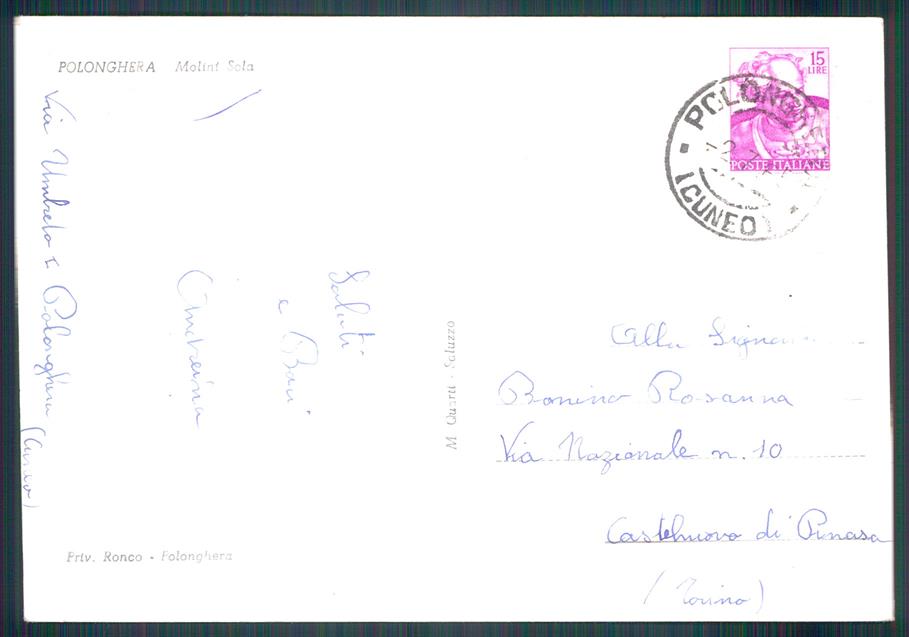 POLONGHERA Molini Sola
15
LIRE
POSTE ITALIANE
(CUNEO)
Saluti
e Baci
Via Umberto I Polonghera (Cuneo)
M. Quarti - Saluzzo
Alla Signora
Bonino Rosanna
Via Nazionale n. 10
Castelnuovo di Pinasa
(Torino)
Priv. Ronco - Polonghera